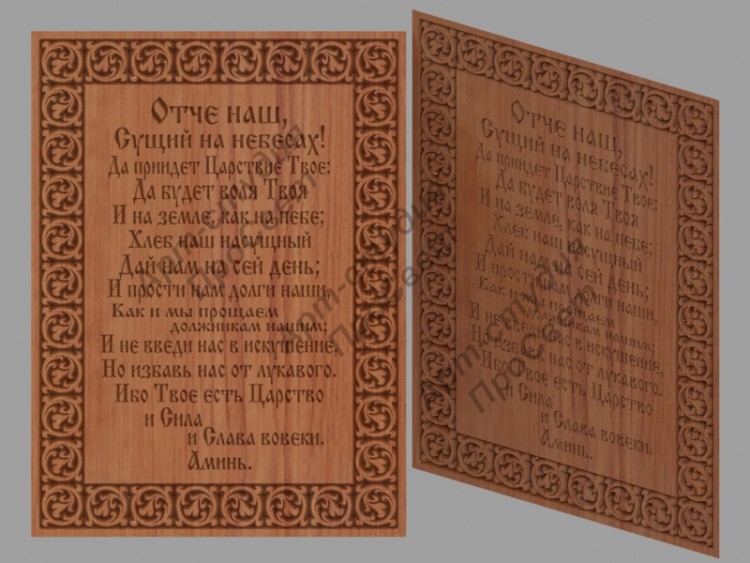 Отче наш,
Сущий на небесах!
Да приидет Царствие Твое:
Да будет воля Твоя
И на земле, как на небе;
Хлеб наш насущный
Дай нам на сей день;
И прости нам долги наши,
Как и мы прощаем
должникам нашим;
И не введи нас в искушение,
Но избавь нас от лукавого.
Ибо Твое есть Царство
и Сила
и Слава вовеки.
Аминь.
Отче наш,
Сущий на небесах!
Да приидет Царствие Твое:
Да будет воля Твоя
И на земле, как на небе;
Хлеб наш насущный
Дай нам на сей день;
И прости нам долги наши,
Как и мы прощаем
должникам нашим;
И не введи нас в искушение,
Но избавь нас от лукавого.
Ибо Твое есть Царство
и Сила
и Слава вовеки.
Аминь.
Арт-студия
ПроСвет
Арт-студия
ПроСвет
Арт-студия
ПроСвет